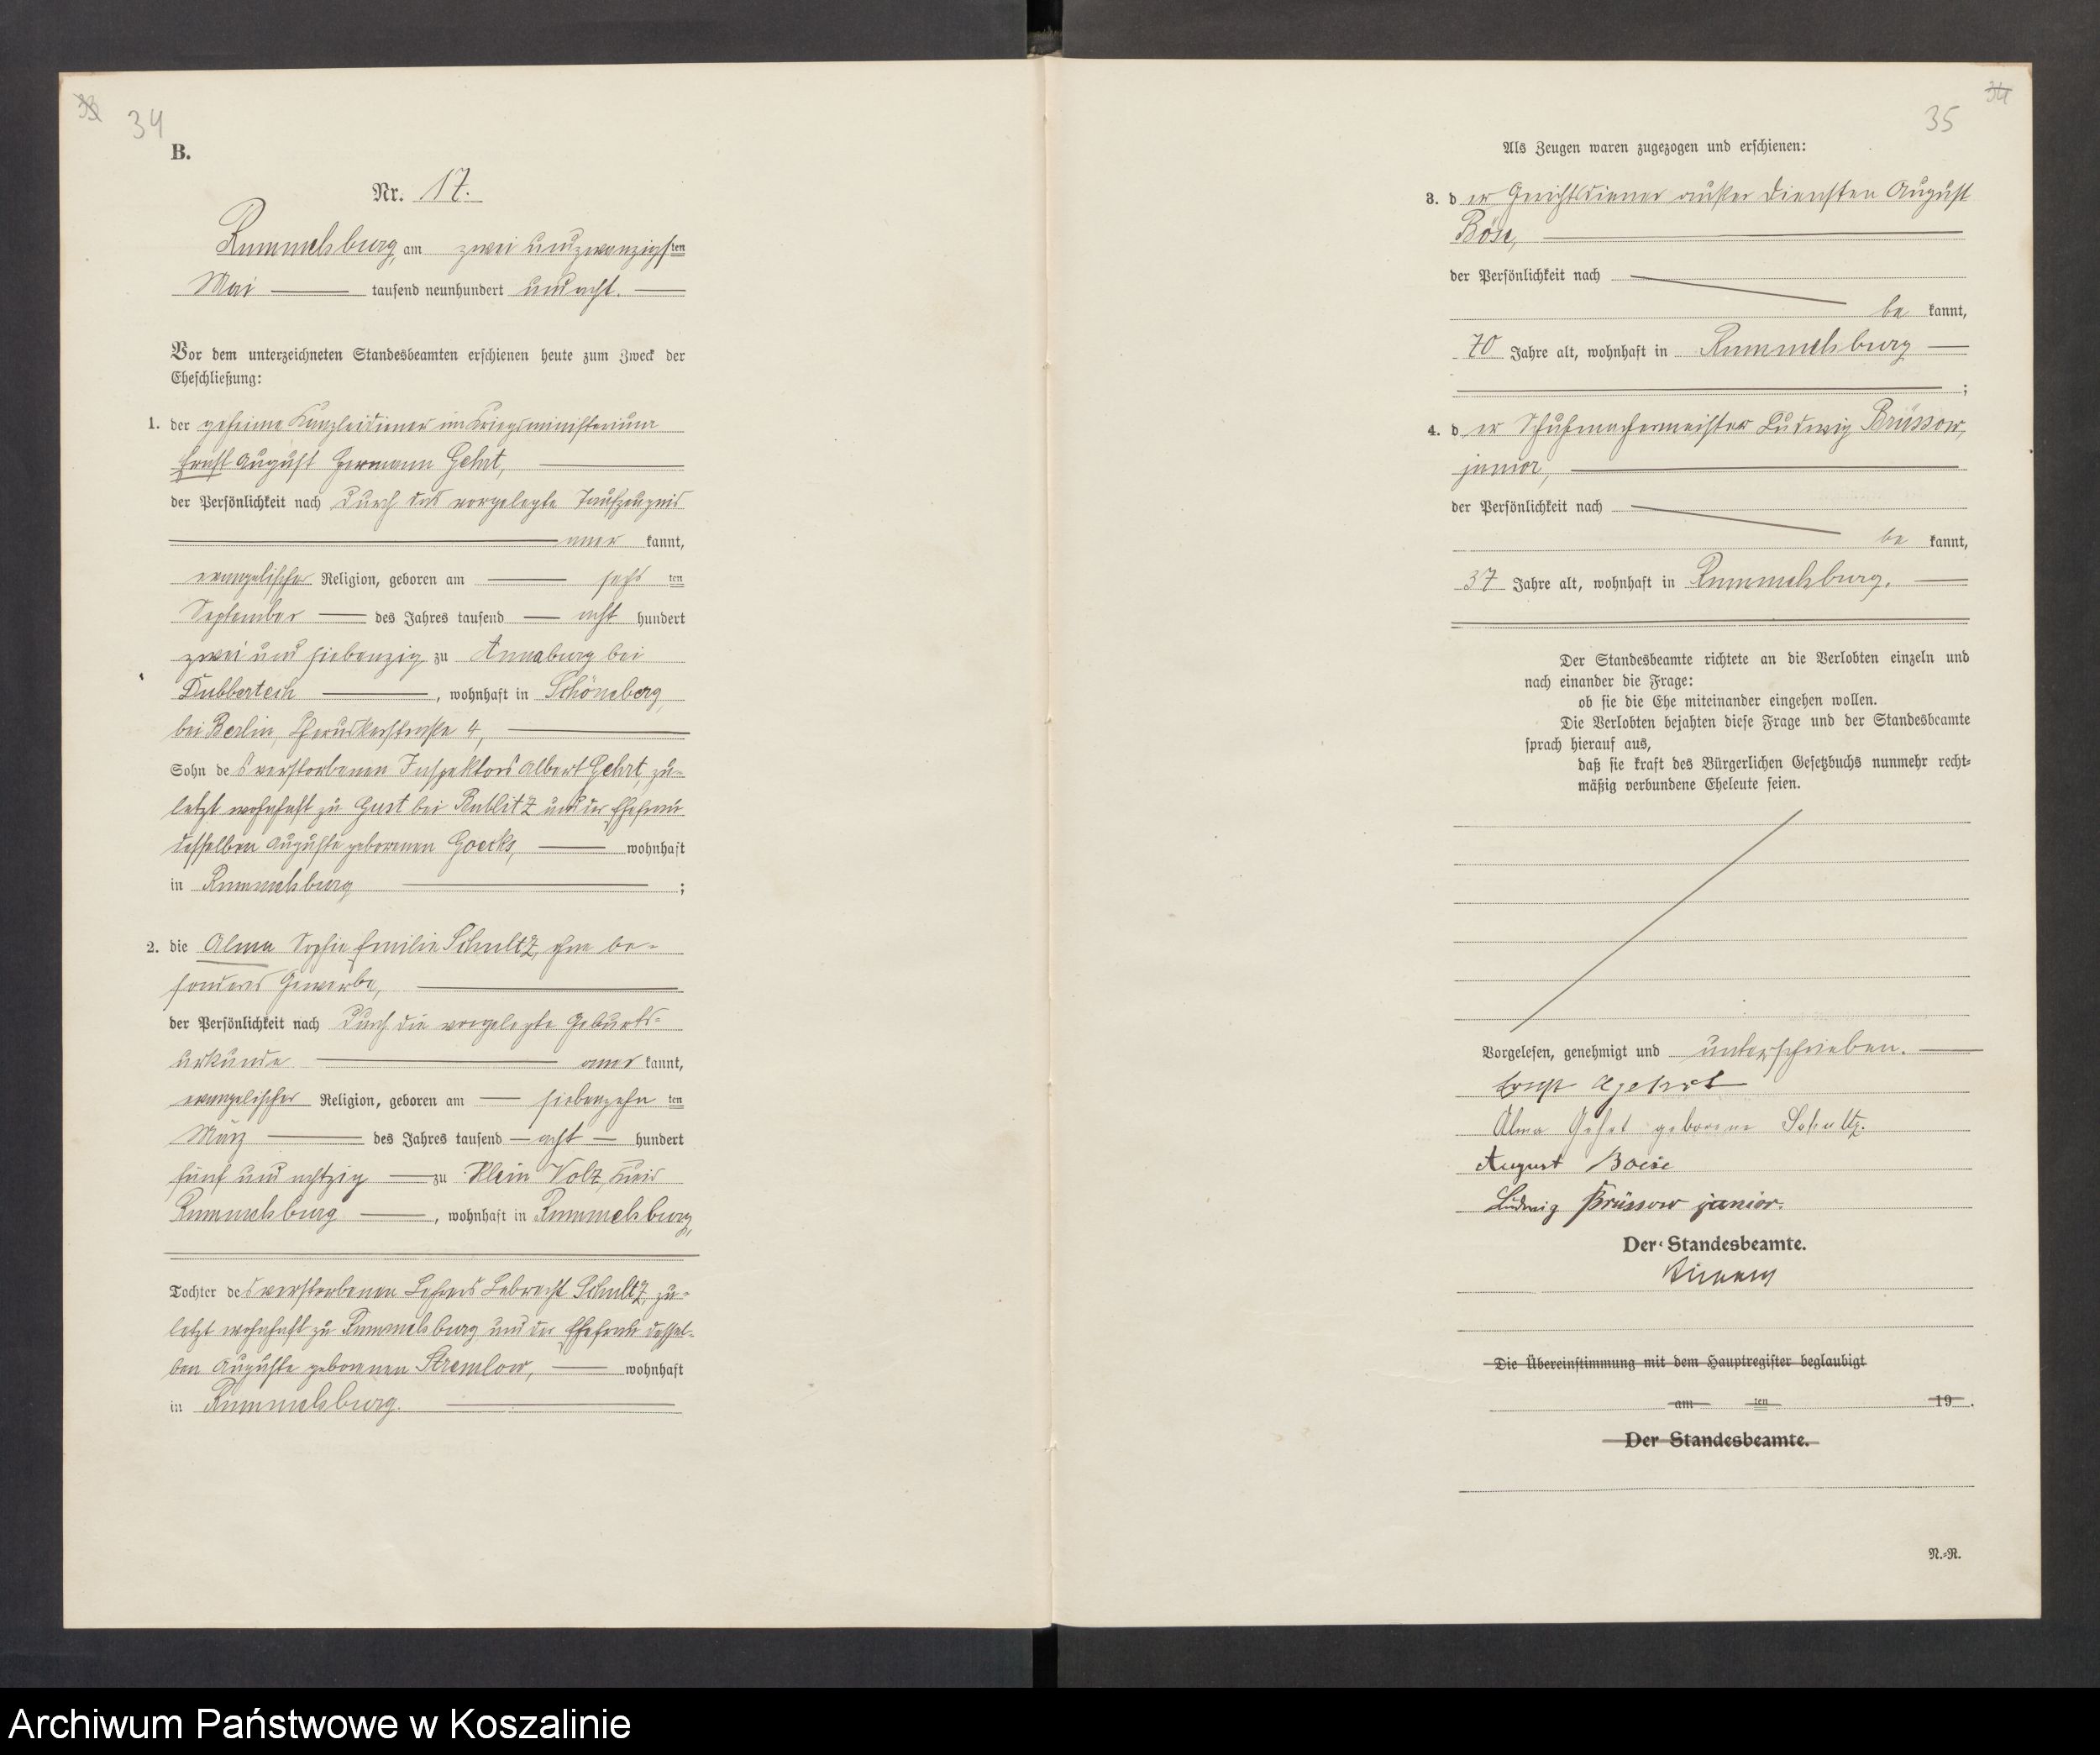 33 34
B.
Nr. 17.
Rummelsburg, am zwei und zwanzigsten
Mai tausend neunhundert und acht.
Vor dem unterzeichneten Standesbeamten erschienen heute zum Zweck der
Eheschließung:
1. der geheime Kanzleidiener im Kriegsministerium
Ernst August Hermann Gehrt,
der Persönlichkeit nach durch das vorgelegte Taufzeugnis
aner kannt,
evangelischer Religion, geboren am sechs ten
September des Jahres tausend acht hundert
zwei und siebenzig zu Annaburg bei
Dubbertech, wohnhaft in Schöneberg
bei Berlin, Cheruskerstraße 4,
Sohn des verstorbenen Inspektors Albert Gehrt, zu-
letzt wohnhaft zu Gust bei Bublitz und der Ehefrau
desselben Auguste geborenen Goecks, wohnhaft
in Rummelsburg ;
2. die Alma Sophie Emilie Schultz, ohne be-
sonderes Gewerbe,
der Persönlichkeit nach durch die vorgelegte Geburts-
urkunde aner kannt,
evangelischer Religion, geboren am siebenzehn ten
März des Jahres tausend acht hundert
fünf und achtzig zu Klein Volz, Kreis
Rummelsburg, wohnhaft in Rummelsburg,
Tochter des verstorbenen Lehrers Lebrecht Schultz, zu-
letzt wohnhaft zu Rummelsburg und der Ehefrau dessel-
ben Auguste geborenen Stremlow, wohnhaft
in Rummelsburg.
35 34
Als Zeugen waren zugezogen und erschienen:
3. der Gerichtsdiener außer Diensten August
Böse,
der Persönlichkeit nach
be kannt,
70 Jahre alt, wohnhaft in Rummelsburg
;
4. der Schuhmachermeister Ludwig Brüssow,
junior,
der Persönlichkeit nach
be kannt,
37 Jahre alt, wohnhaft in Rummelsburg.
Der Standesbeamte richtete an die Verlobten einzeln und
nach einander die Frage:
ob sie die Ehe miteinander eingehen wollen.
Die Verlobten bejahten diese Frage und der Standesbeamte
sprach hierauf aus,
daß sie kraft des Bürgerlichen Gesetzbuchs nunmehr recht-
mäßig verbundene Eheleute seien.
Vorgelesen, genehmigt und unterschrieben.
Ernst Gehrt
Alma Gehrt geborene Schultz.
August Boese
Ludwig Brüssow junior.
Der Standesbeamte.
Die Übereinstimmung mit dem Hauptregister beglaubigt
am ten 19 .
Der Standesbeamte.
N.-R.
Archiwum Państwowe w Koszalinie